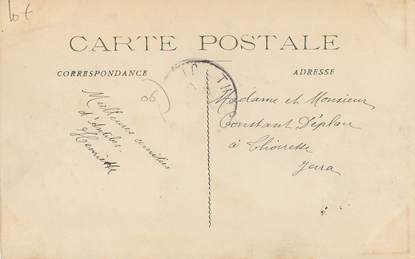 CARTE POSTALE
CORRESPONDANCE
ADRESSE
Meilleures amitiés
d'Antibes
Henriette
Madame et Monsieur
Constant Déplau
à Thoirette
Jura